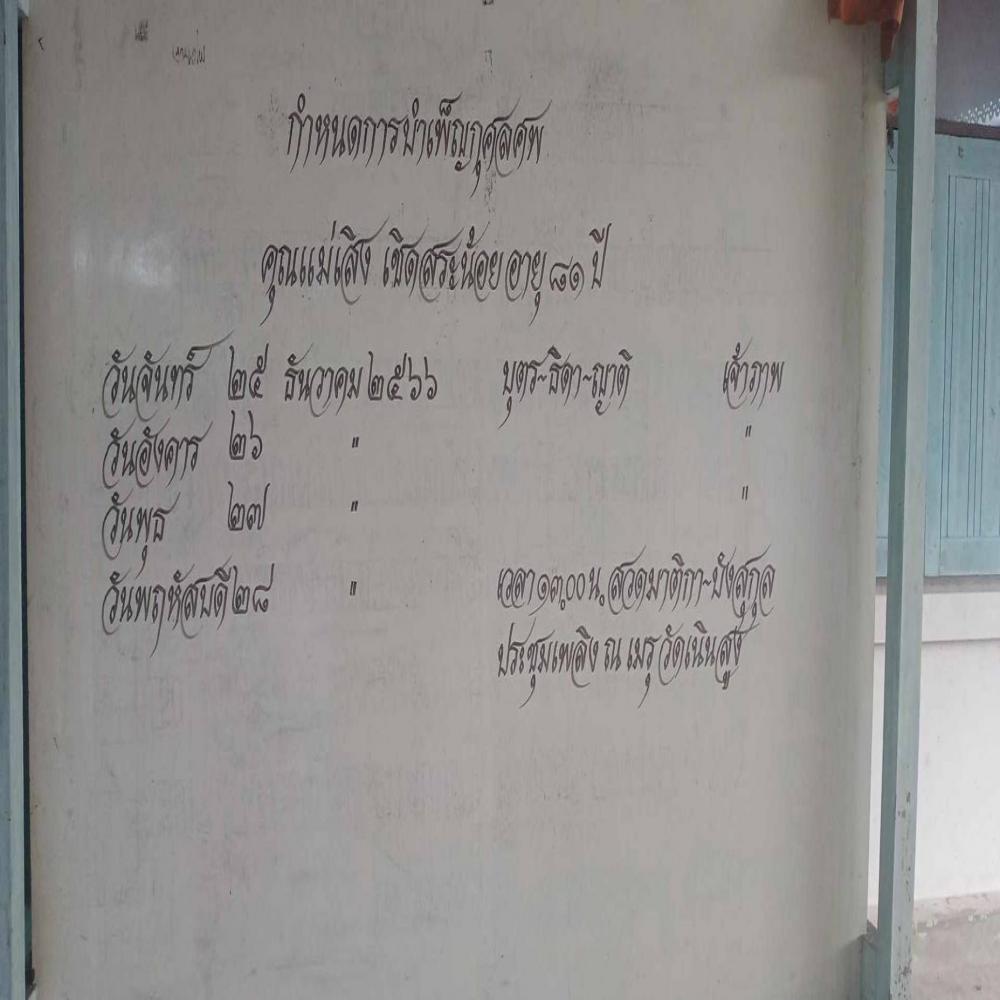 กำหนดการบำเพ็ญกุศลศพ
คุณแม่เสิง เชิดสระน้อย อายุ ๘๑ ปี
วันจันทร์ ๒๕ ธันวาคม ๒๕๖๖ บุตร~ธิดา~ญาติ เจ้าภาพ
วันอังคาร ๒๖ " "
วันพุธ ๒๗ " "
วันพฤหัสบดี ๒๘ " เวลา ๑๓.๐๐ น. สวดมาติกา~บังสุกุล
ประชุมเพลิง ณ เมรุ วัดเนินสูง